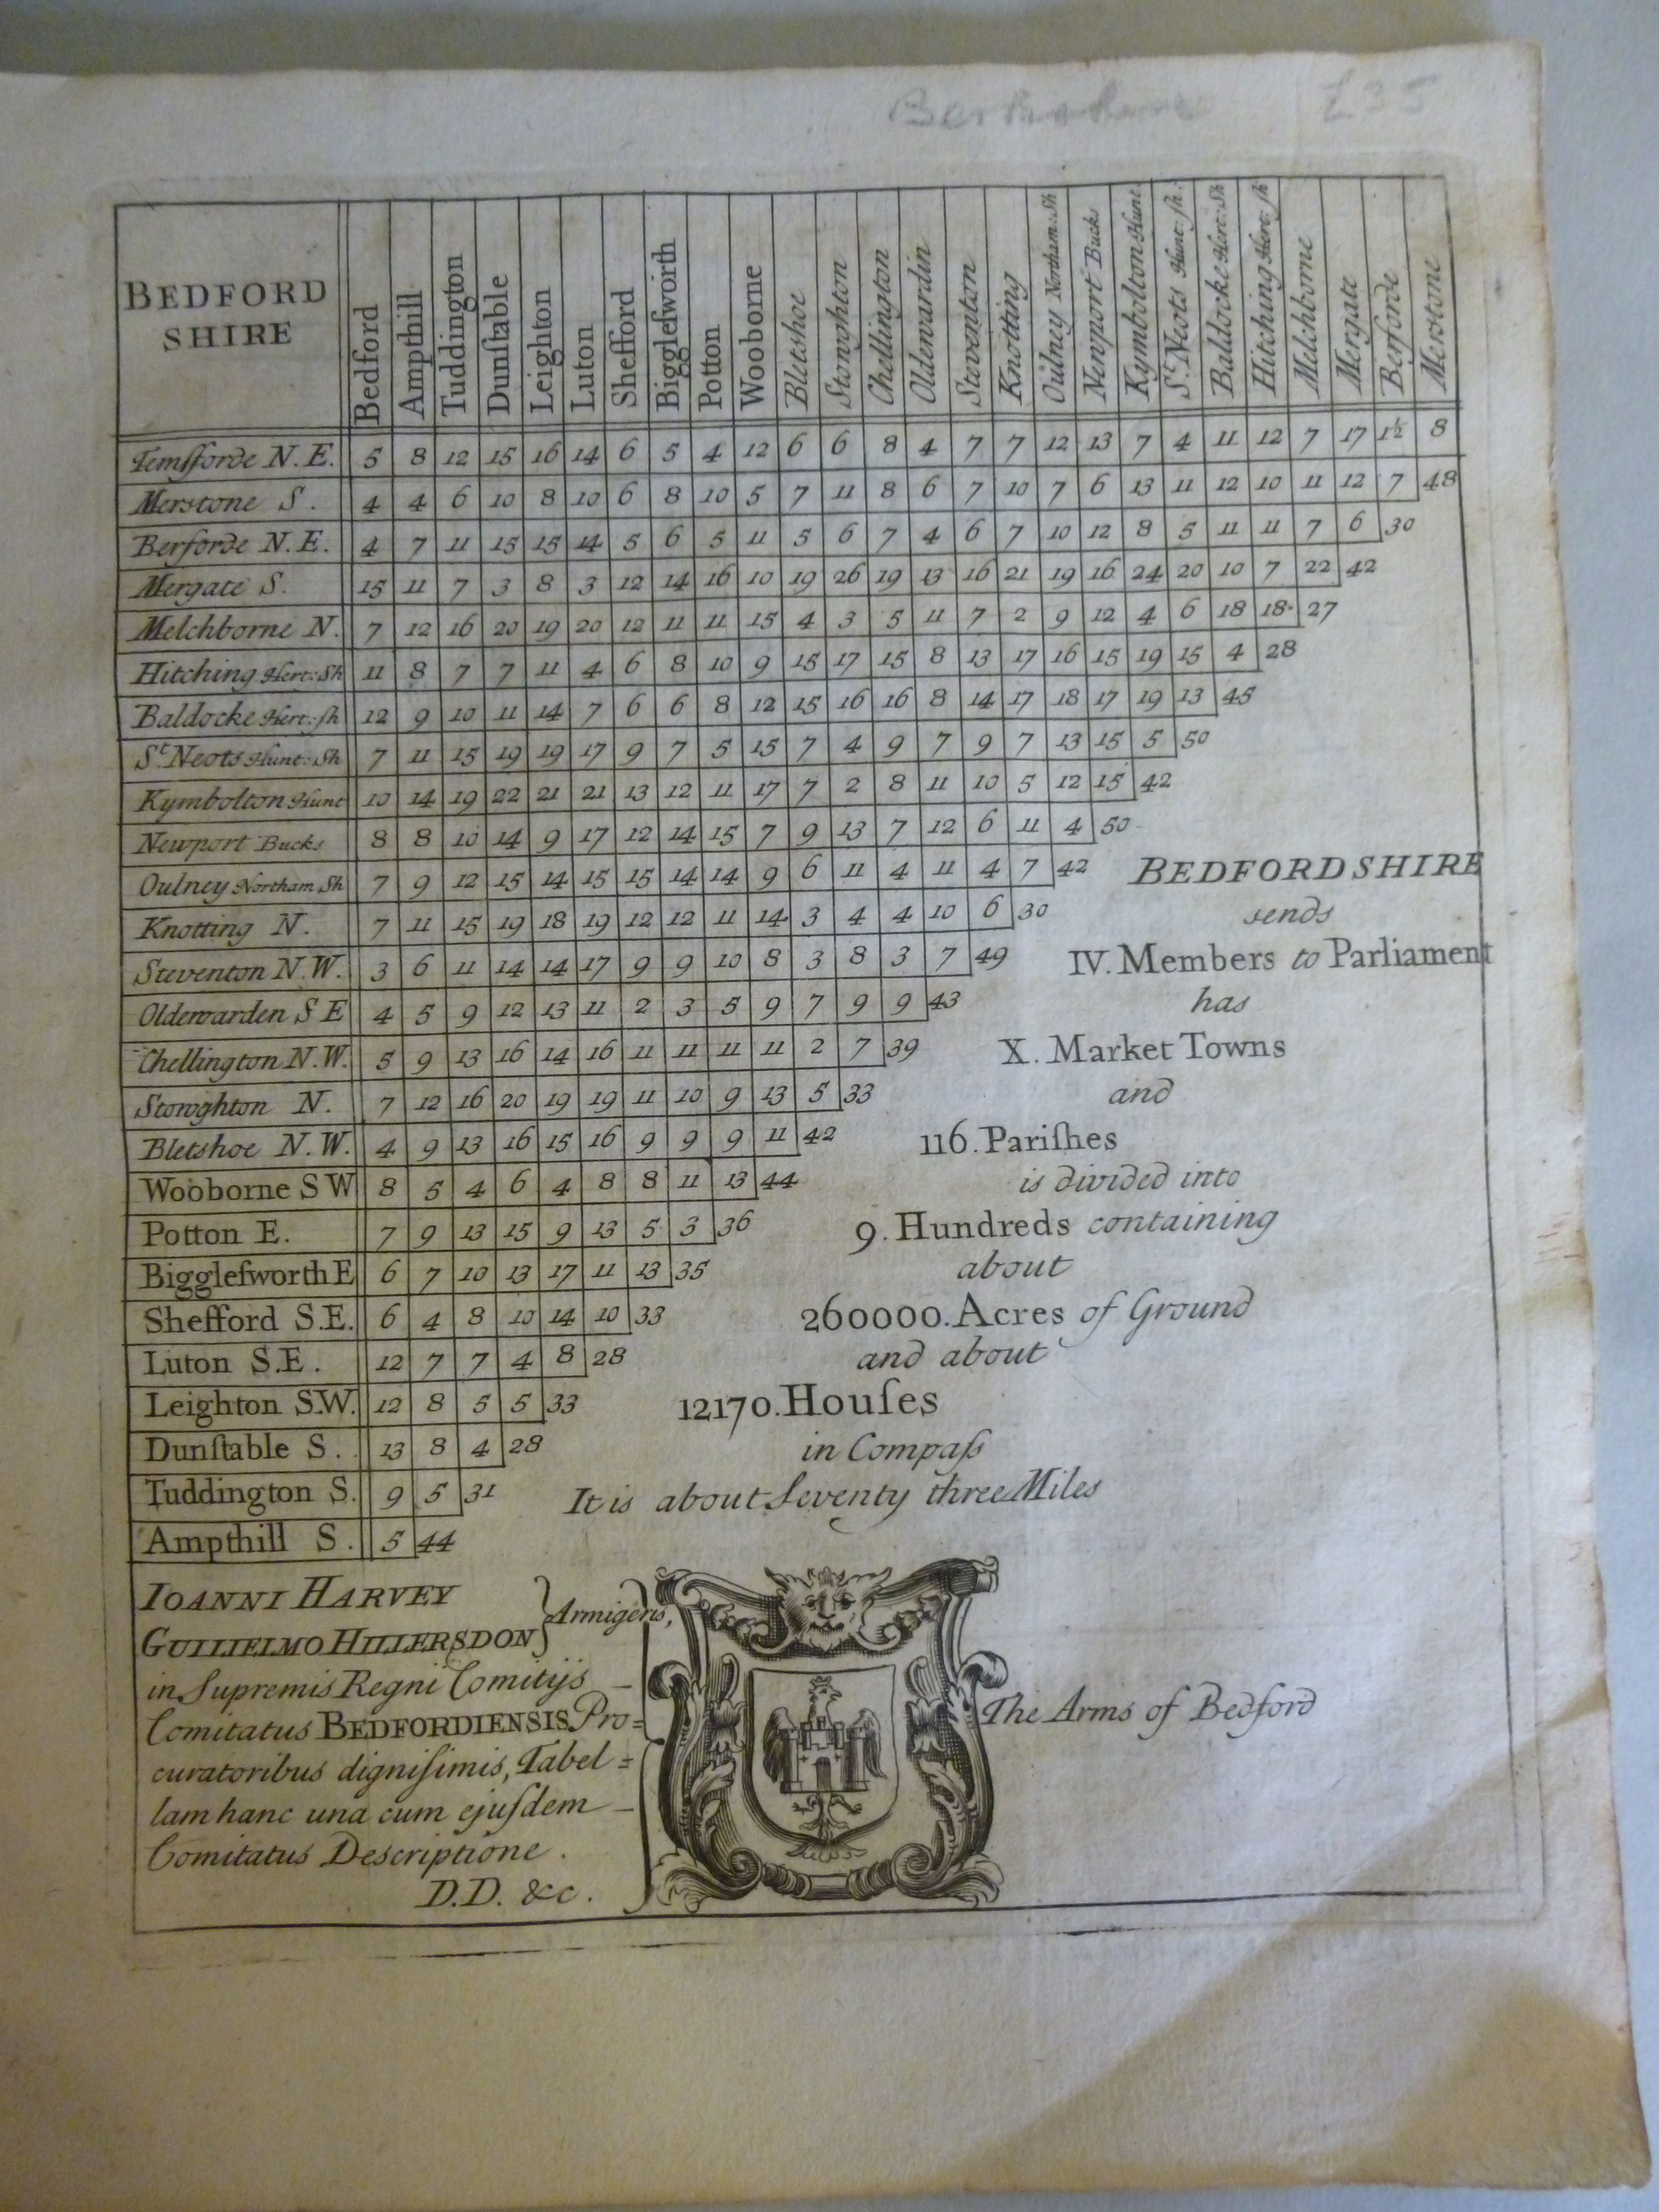 £35
BEDFORD SHIRE Bedford Ampthill Tuddington Dunſtable Leighton Luton Shefford Bigglesworth Potton Wooborne Bletshoe Stowghton Chellington Oldewardin Steventon Knotting Oulney Northam:Sh Newport Bucks Kymbolton Hunt St. Neots Hunt:ſh. Baldocke Hert:Sh Hitching Hert:ſh Melchborne Mergate Berforde Merstone
Temſforde N.E. 5 8 12 15 16 14 6 5 4 12 6 6 8 4 7 7 12 13 7 4 11 12 7 17 1½ 8
Merstone S. 4 4 6 10 8 10 6 8 10 5 7 11 8 6 7 10 7 6 13 11 12 10 11 12 7 48
Berforde N.E. 4 7 11 15 15 14 5 6 5 11 5 6 7 4 6 7 10 12 8 5 11 11 7 6 30
Mergate S. 15 11 7 3 8 3 12 14 16 10 19 26 19 13 16 21 19 16 24 20 10 7 22 42
Melchborne N. 7 12 16 20 19 20 12 11 11 15 4 3 5 11 7 2 9 12 4 6 18 18 27
Hitching Hert:Sh 11 8 7 7 11 4 6 8 10 9 15 17 15 8 13 17 16 15 19 15 4 28
Baldocke Hert:ſh 12 9 10 11 14 7 6 6 8 12 15 16 16 8 14 17 18 17 19 13 45
St. Neots Hunt:Sh 7 11 15 19 19 17 9 7 5 15 7 4 9 7 9 7 13 15 5 50
Kymbolton Hunt 10 14 19 22 21 21 13 12 11 17 7 2 8 11 10 5 12 15 42
Newport Bucks 8 8 10 14 9 17 12 14 15 7 9 13 7 12 6 11 4 50
Oulney Northam Sh 7 9 12 15 14 15 15 14 14 9 6 11 4 11 4 7 42
Knotting N. 7 11 15 19 18 19 12 12 11 14 3 4 4 10 6 30
Steventon N.W. 3 6 11 14 14 17 9 9 10 8 3 8 3 7 49
Oldewarden S E 4 5 9 12 13 11 2 3 5 9 7 9 9 43
Chellington N.W. 5 9 13 16 14 16 11 11 11 11 2 7 39
Stowghton N. 7 12 16 20 19 19 11 10 9 13 5 33
Bletshoe N.W. 4 9 13 16 15 16 9 9 9 11 42
Wooborne S W 8 5 4 6 4 8 8 11 13 44
Potton E. 7 9 13 15 9 13 5 3 36
Bigglesworth E 6 7 10 13 17 11 13 35
Shefford S.E. 6 4 8 10 14 10 33
Luton S.E. 12 7 7 4 8 28
Leighton S.W. 12 8 5 5 33
Dunſtable S. 13 8 4 28
Tuddington S. 9 5 31
Ampthill S. 5 44
BEDFORDSHIRE
sends
IV. Members to Parliament
has
X. Market Towns
and
116. Pariſhes
is divided into
9. Hundreds containing
about
260000. Acres of Ground
and about
12170. Houſes
in Compaſs
It is about Seventy three Miles
IOANNI HARVEY
GUILIELMO HILLERSDON } Armigeris,
in Supremis Regni Comitijs
Comitatus BEDFORDIENSIS Pro=
curatoribus digniſimis, Tabel=
lam hanc una cum ejuſdem
Comitatus Descriptione.
D.D. &c.
The Arms of Bedford